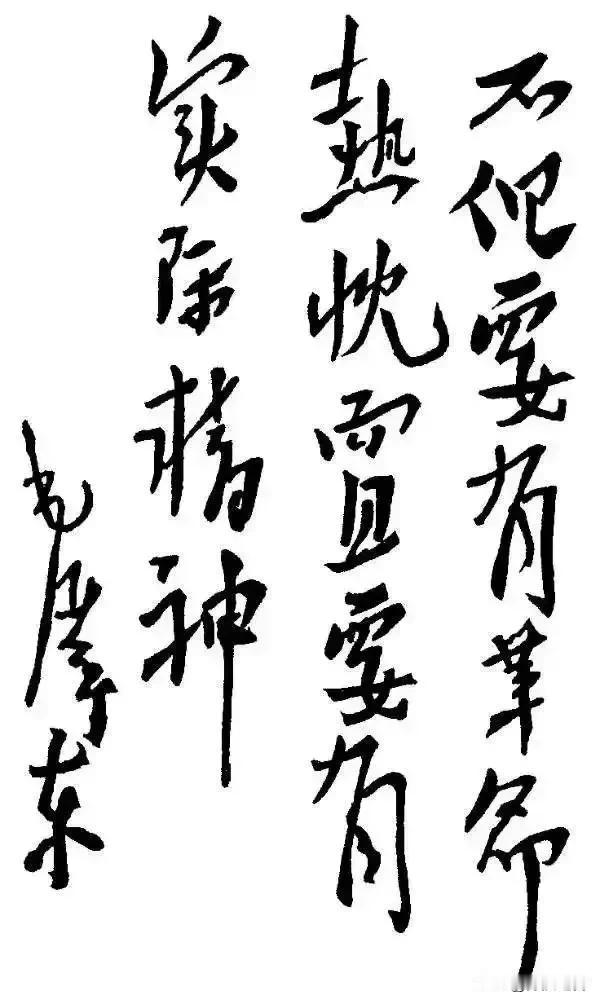 不但要有革命
熱忱而且要有
实际精神
毛澤东